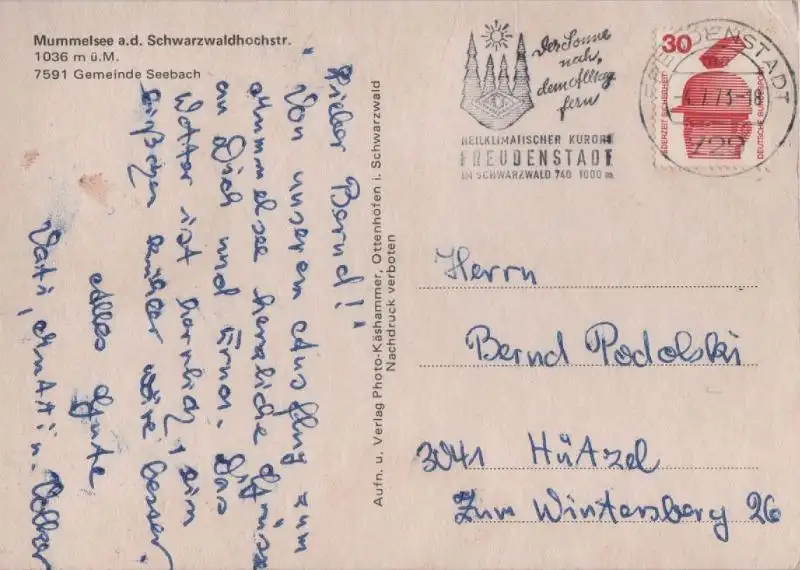 Mummelsee a.d. Schwarzwaldhochstr.
1036 m ü.M.
7591 Gemeinde Seebach
Lieber Bernd!
Von unserem Ausflug zum
Mummelsee herzliche Grüsse
an Dich und Erna. Das
Wetter ist herrlich, ein
bißchen kühler wäre besser.
Alles Gute
Vati, Mutti u. Volker
Aufn. u. Verlag Photo-Käshammer, Ottenhöfen i. Schwarzwald
Nachdruck verboten
Der Sonne
nah,
dem Alltag
fern
HEILKLIMATISCHER KURORT
FREUDENSTADT
IM SCHWARZWALD 740 1000 m
FREUDENSTADT
7.73-18
729
30
JEDERZEIT SICHERHEIT
DEUTSCHE BUNDESPOST
Herrn
Bernd Podolski
3041 Hützel
Zum Wintersberg 26